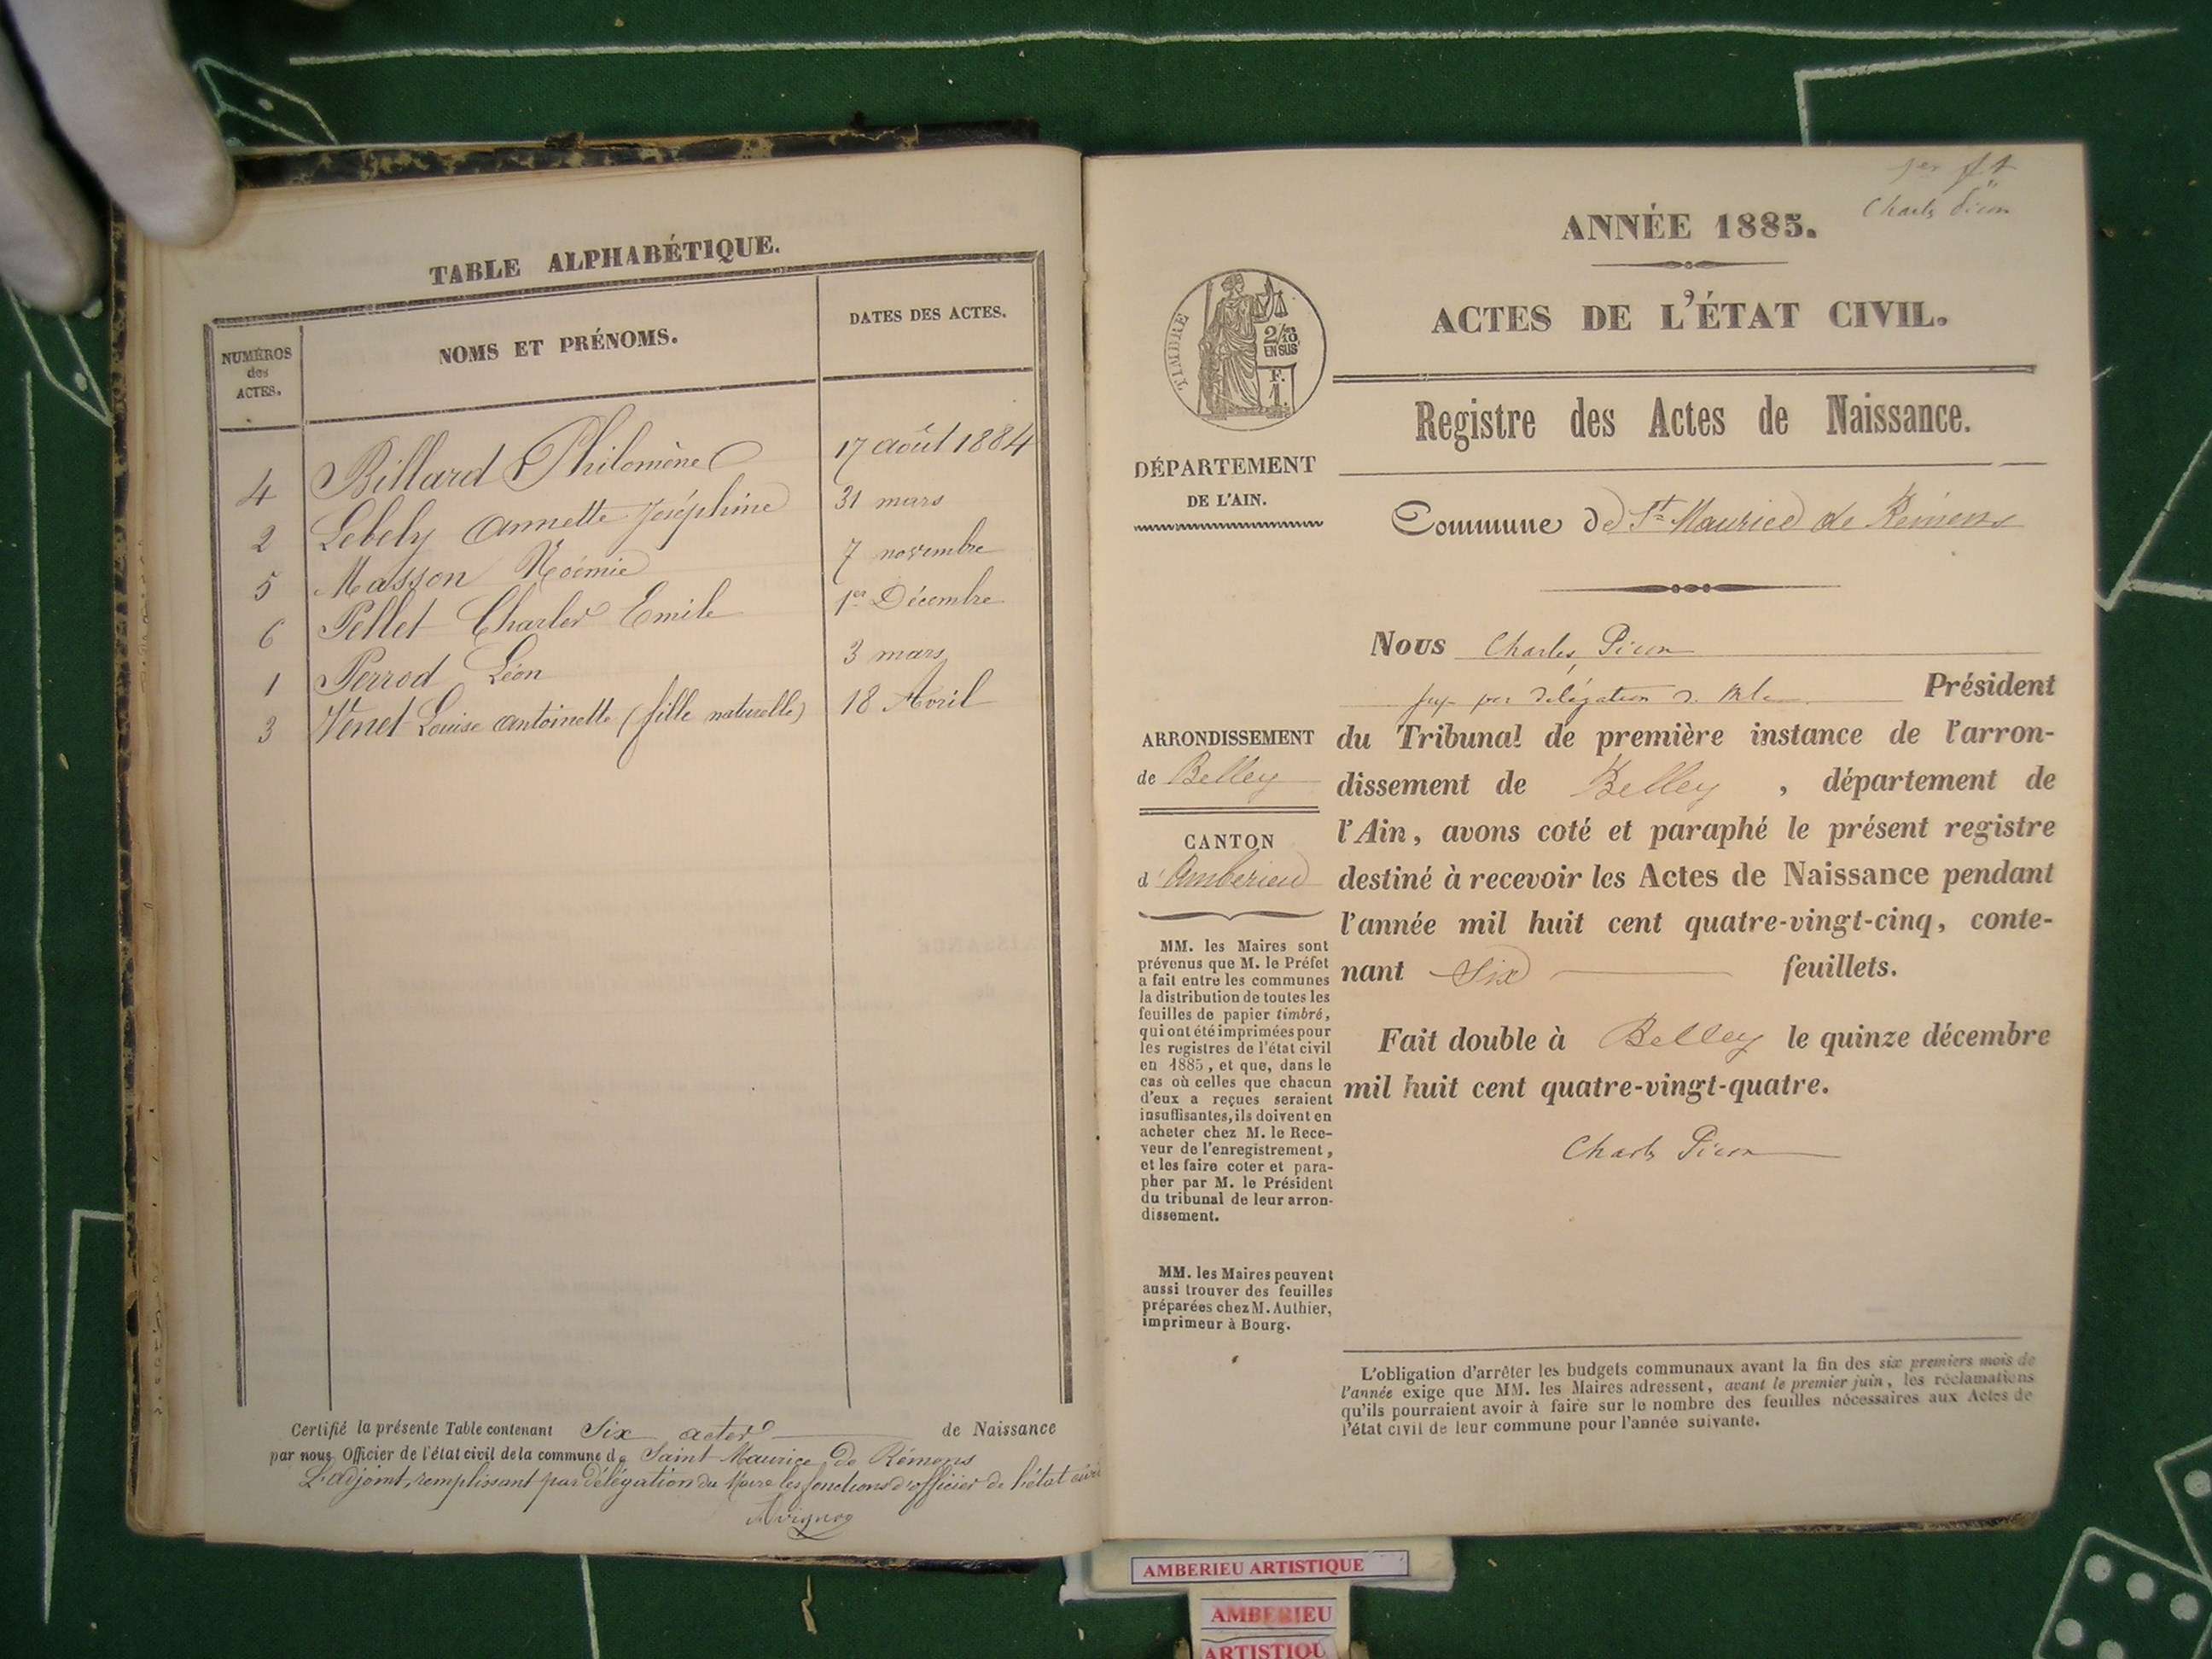 TABLE ALPHABÉTIQUE.
NUMÉROS
des
ACTES.
NOMS ET PRÉNOMS.
DATES DES ACTES.
4 Billard Philomène 17 août 1884
2 Lebely Annette Joséphine 31 mars
5 Masson Noémie 7 novembre
6 Pellet Charles Emile 1er Décembre
1 Perrod Léon 3 mars
3 Venet Louise Antoinette (fille naturelle) 18 Avril
Certifié la présente Table contenant Six actes de Naissance
par nous Officier de l'état civil de la commune de Saint Maurice de Rémens
L'adjoint, remplissant par délégation du Maire les fonctions d'officier de l'état civil
1er f.t
Charles Picon
ANNÉE 1885.
ACTES DE L'ÉTAT CIVIL.
TIMBRE
2/10
EN SUS
F.
1.
Registre des Actes de Naissance.
DÉPARTEMENT
DE L'AIN.
Commune de St Maurice de Rémens
Nous Charles Picon
par délégation Président
du Tribunal de première instance de l'arron-
dissement de Belley , département de
l'Ain, avons coté et paraphé le présent registre
destiné à recevoir les Actes de Naissance pendant
l'année mil huit cent quatre-vingt-cinq, conte-
nant Six feuillets.
Fait double à Belley le quinze décembre
mil huit cent quatre-vingt-quatre.
Charles Picon
ARRONDISSEMENT
de Belley
CANTON
d'Ambérieu
MM. les Maires sont
prévenus que M. le Préfet
a fait entre les communes
la distribution de toutes les
feuilles de papier timbré,
qui ont été imprimées pour
les registres de l'état civil
en 1885, et que, dans le
cas où celles que chacun
d'eux a reçues seraient
insuffisantes, ils doivent en
acheter chez M. le Rece-
veur de l'enregistrement,
et les faire coter et para-
pher par M. le Président
du tribunal de leur arron-
dissement.
MM. les Maires peuvent
aussi trouver des feuilles
préparées chez M. Authier,
imprimeur à Bourg.
L'obligation d'arrêter les budgets communaux avant la fin des six premiers mois de
l'année exige que MM. les Maires adressent, avant le premier juin, les réclamations
qu'ils pourraient avoir à faire sur le nombre des feuilles nécessaires aux Actes de
l'état civil de leur commune pour l'année suivante.
AMBERIEU ARTISTIQUE
AMBERIEU
ARTISTIQU